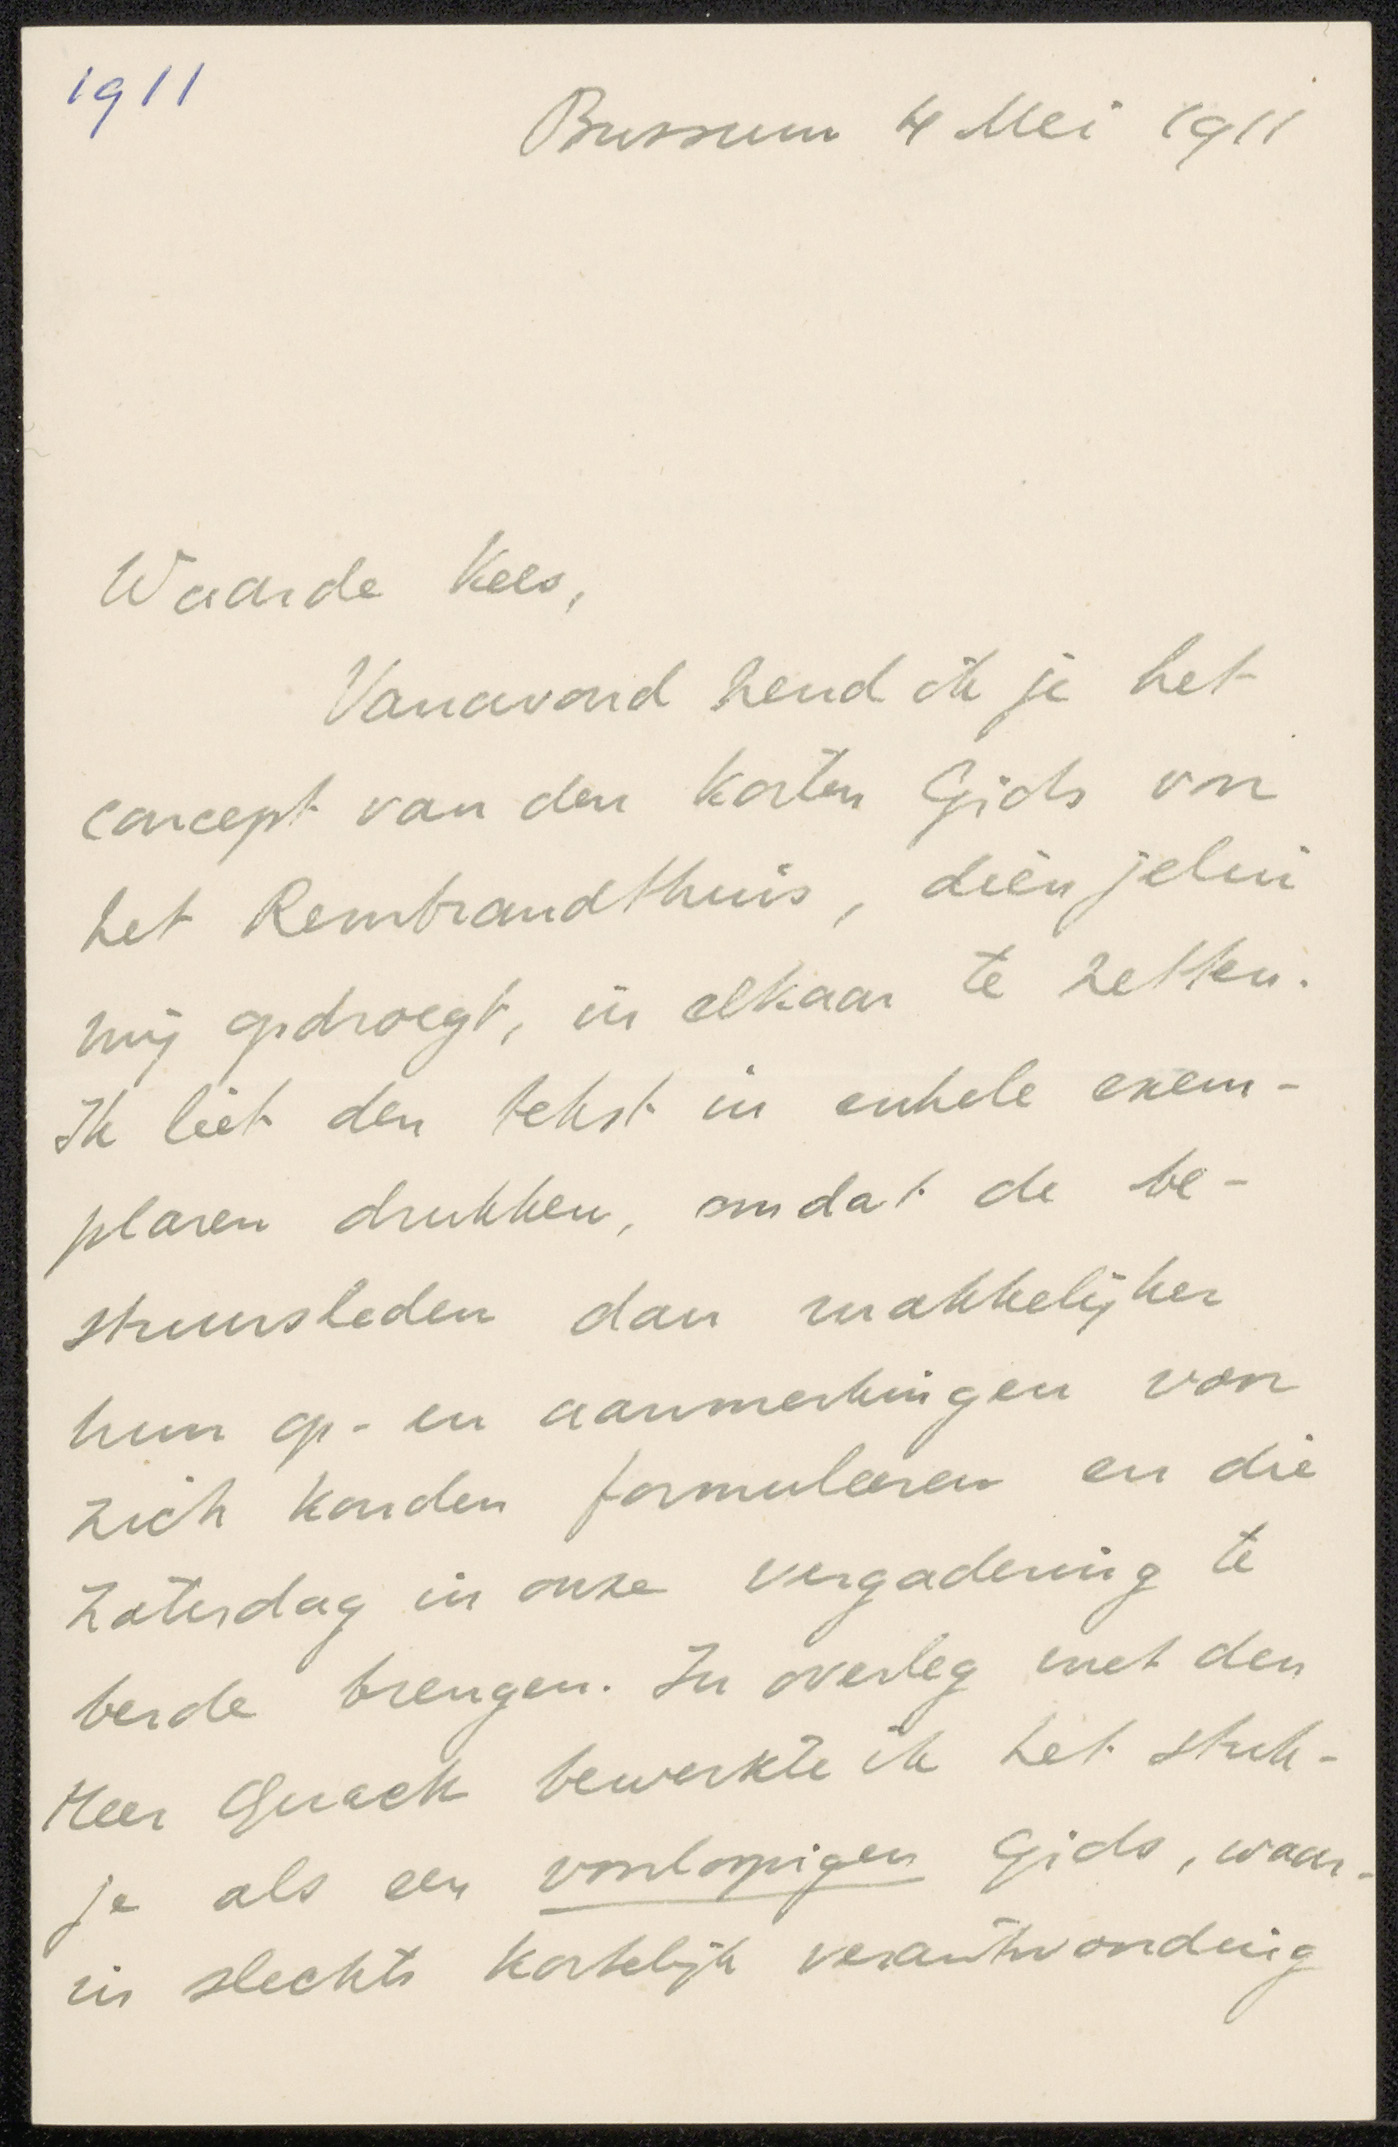 1911
Bussum 4 Mei 1911
Waarde Kees,
Vanavond zend ik je het
concept van den korten Gids voor
het Rembrandthuis, dièn jelui
mij opdroegt, in elkaar te zetten.
Ik liet den tekst in enkele exem-
plaren drukken, omdat de be-
stuursleden dan makkelijker
hun op- en aanmerkingen voor
zich konden formuleeren en die
Zaterdag in onze vergadering te
berde brengen. In overleg met den
Heer Quack bewerkte ik het stuk-
je als een voorloopigen Gids, waar-
in slechts kortelijk verantwoording